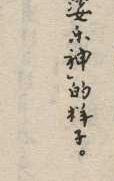 婆示神的样子。